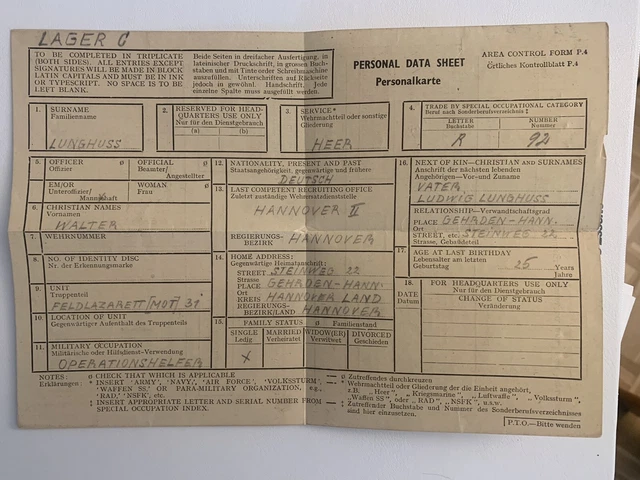 LAGER C
TO BE COMPLETED IN TRIPLICATE
(BOTH SIDES). ALL ENTRIES EXCEPT
SIGNATURES WILL BE MADE IN BLOCK
LATIN CAPITALS AND MUST BE IN INK
OR TYPESCRIPT. NO SPACE IS TO BE
LEFT BLANK.
Beide Seiten in dreifacher Ausfertigung, in
lateinischer Druckschrift, in grossen Buch-
staben und mit Tinte oder Schreibmaschine
auszufüllen. Unterschriften auf Rückseite
jedoch in gewöhnl. Handschrift. Jede
einzelne Spalte muss ausgefüllt werden.
PERSONAL DATA SHEET
Personalkarte
AREA CONTROL FORM P.4
Örtliches Kontrollblatt P.4
1. SURNAME
Familienname
LUNGHUSS
2. RESERVED FOR HEAD-
QUARTERS USE ONLY
Nur für den Dienstgebrauch
(a) (b)
3. SERVICE*
Wehrmachtteil oder sonstige
Gliederung
HEER
4. TRADE BY SPECIAL OCCUPATIONAL CATEGORY
Beruf nach Sonderberufsverzeichnis
LETTER
Buchstabe
R
NUMBER
Nummer
92
5. OFFICER ø
Offizier
OFFICIAL ø
Beamter/
Angestellter
EM/OR
Unteroffizier/
Mannschaft
WOMAN ø
Frau
6. CHRISTIAN NAMES
Vornamen
WALTER
7. WEHRNUMMER
8. NO. OF IDENTITY DISC
Nr. der Erkennungsmarke
9. UNIT
Truppenteil
FELDLAZARETT (MOT) 31
10. LOCATION OF UNIT
Gegenwärtiger Aufenthalt des Truppenteils
11. MILITARY OCCUPATION
Militärische oder Hilfsdienst-Verwendung
OPERATIONSHELFER
12. NATIONALITY, PRESENT AND PAST
Staatsangehörigkeit, gegenwärtige und frühere
DEUTSCH
13. LAST COMPETENT RECRUITING OFFICE
Zuletzt zuständige Wehrersatzdienststelle
HANNOVER II
REGIERUNGS-
BEZIRK HANNOVER
14. HOME ADDRESS:
Gegenwärtige Heimatanschrift:
STREET STEINWEG 22
Strasse
PLACE GEHRDEN-HANN.
Ort
KREIS HANNOVER LAND
REGIERUNGS-
BEZIRK/LAND HANNOVER
15. FAMILY STATUS ø Familienstand
SINGLE
Ledig
X
MARRIED
Verheiratet
WIDOW(ER)
Verwitwet
DIVORCED
Geschieden
16. NEXT OF KIN—CHRISTIAN AND SURNAMES
Anschrift der nächsten lebenden
Angehörigen—Vor- und Zuname
VATER
LUDWIG LUNGHUSS
RELATIONSHIP—Verwandtschaftsgrad
PLACE GEHRDEN-HANN.
Ort
STREET, etc. STEINWEG 22
Strasse, Gebäudeteil
17. AGE AT LAST BIRTHDAY
Lebensalter am letzten
Geburtstag 25 Years
Jahre
18. DATE
Datum
FOR HEADQUARTERS USE ONLY
Nur für den Dienstgebrauch
CHANGE OF STATUS
Veränderung
NOTES:
Erklärungen:
ø CHECK THAT WHICH IS APPLICABLE
* INSERT 'ARMY', 'NAVY', 'AIR FORCE', 'VOLKSSTURM',
'WAFFEN SS.' OR PARA-MILITARY ORGANIZATION, e.g.,
'RAD', 'NSFK', etc.
‡ INSERT APPROPRIATE LETTER AND SERIAL NUMBER FROM
SPECIAL OCCUPATION INDEX.
ø. Zutreffendes durchkreuzen
* Wehrmachtteil oder Gliederung der die Einheit angehört,
z.B. „Heer", „Kriegsmarine", „Luftwaffe", „Volkssturm",
„Waffen SS", oder „RAD", „NSFK", u.s.w.
‡ Zutreffender Buchstabe und Nummer des Sonderberufsverzeichnisses
sind hier einzusetzen.
P.T.O.—Bitte wenden